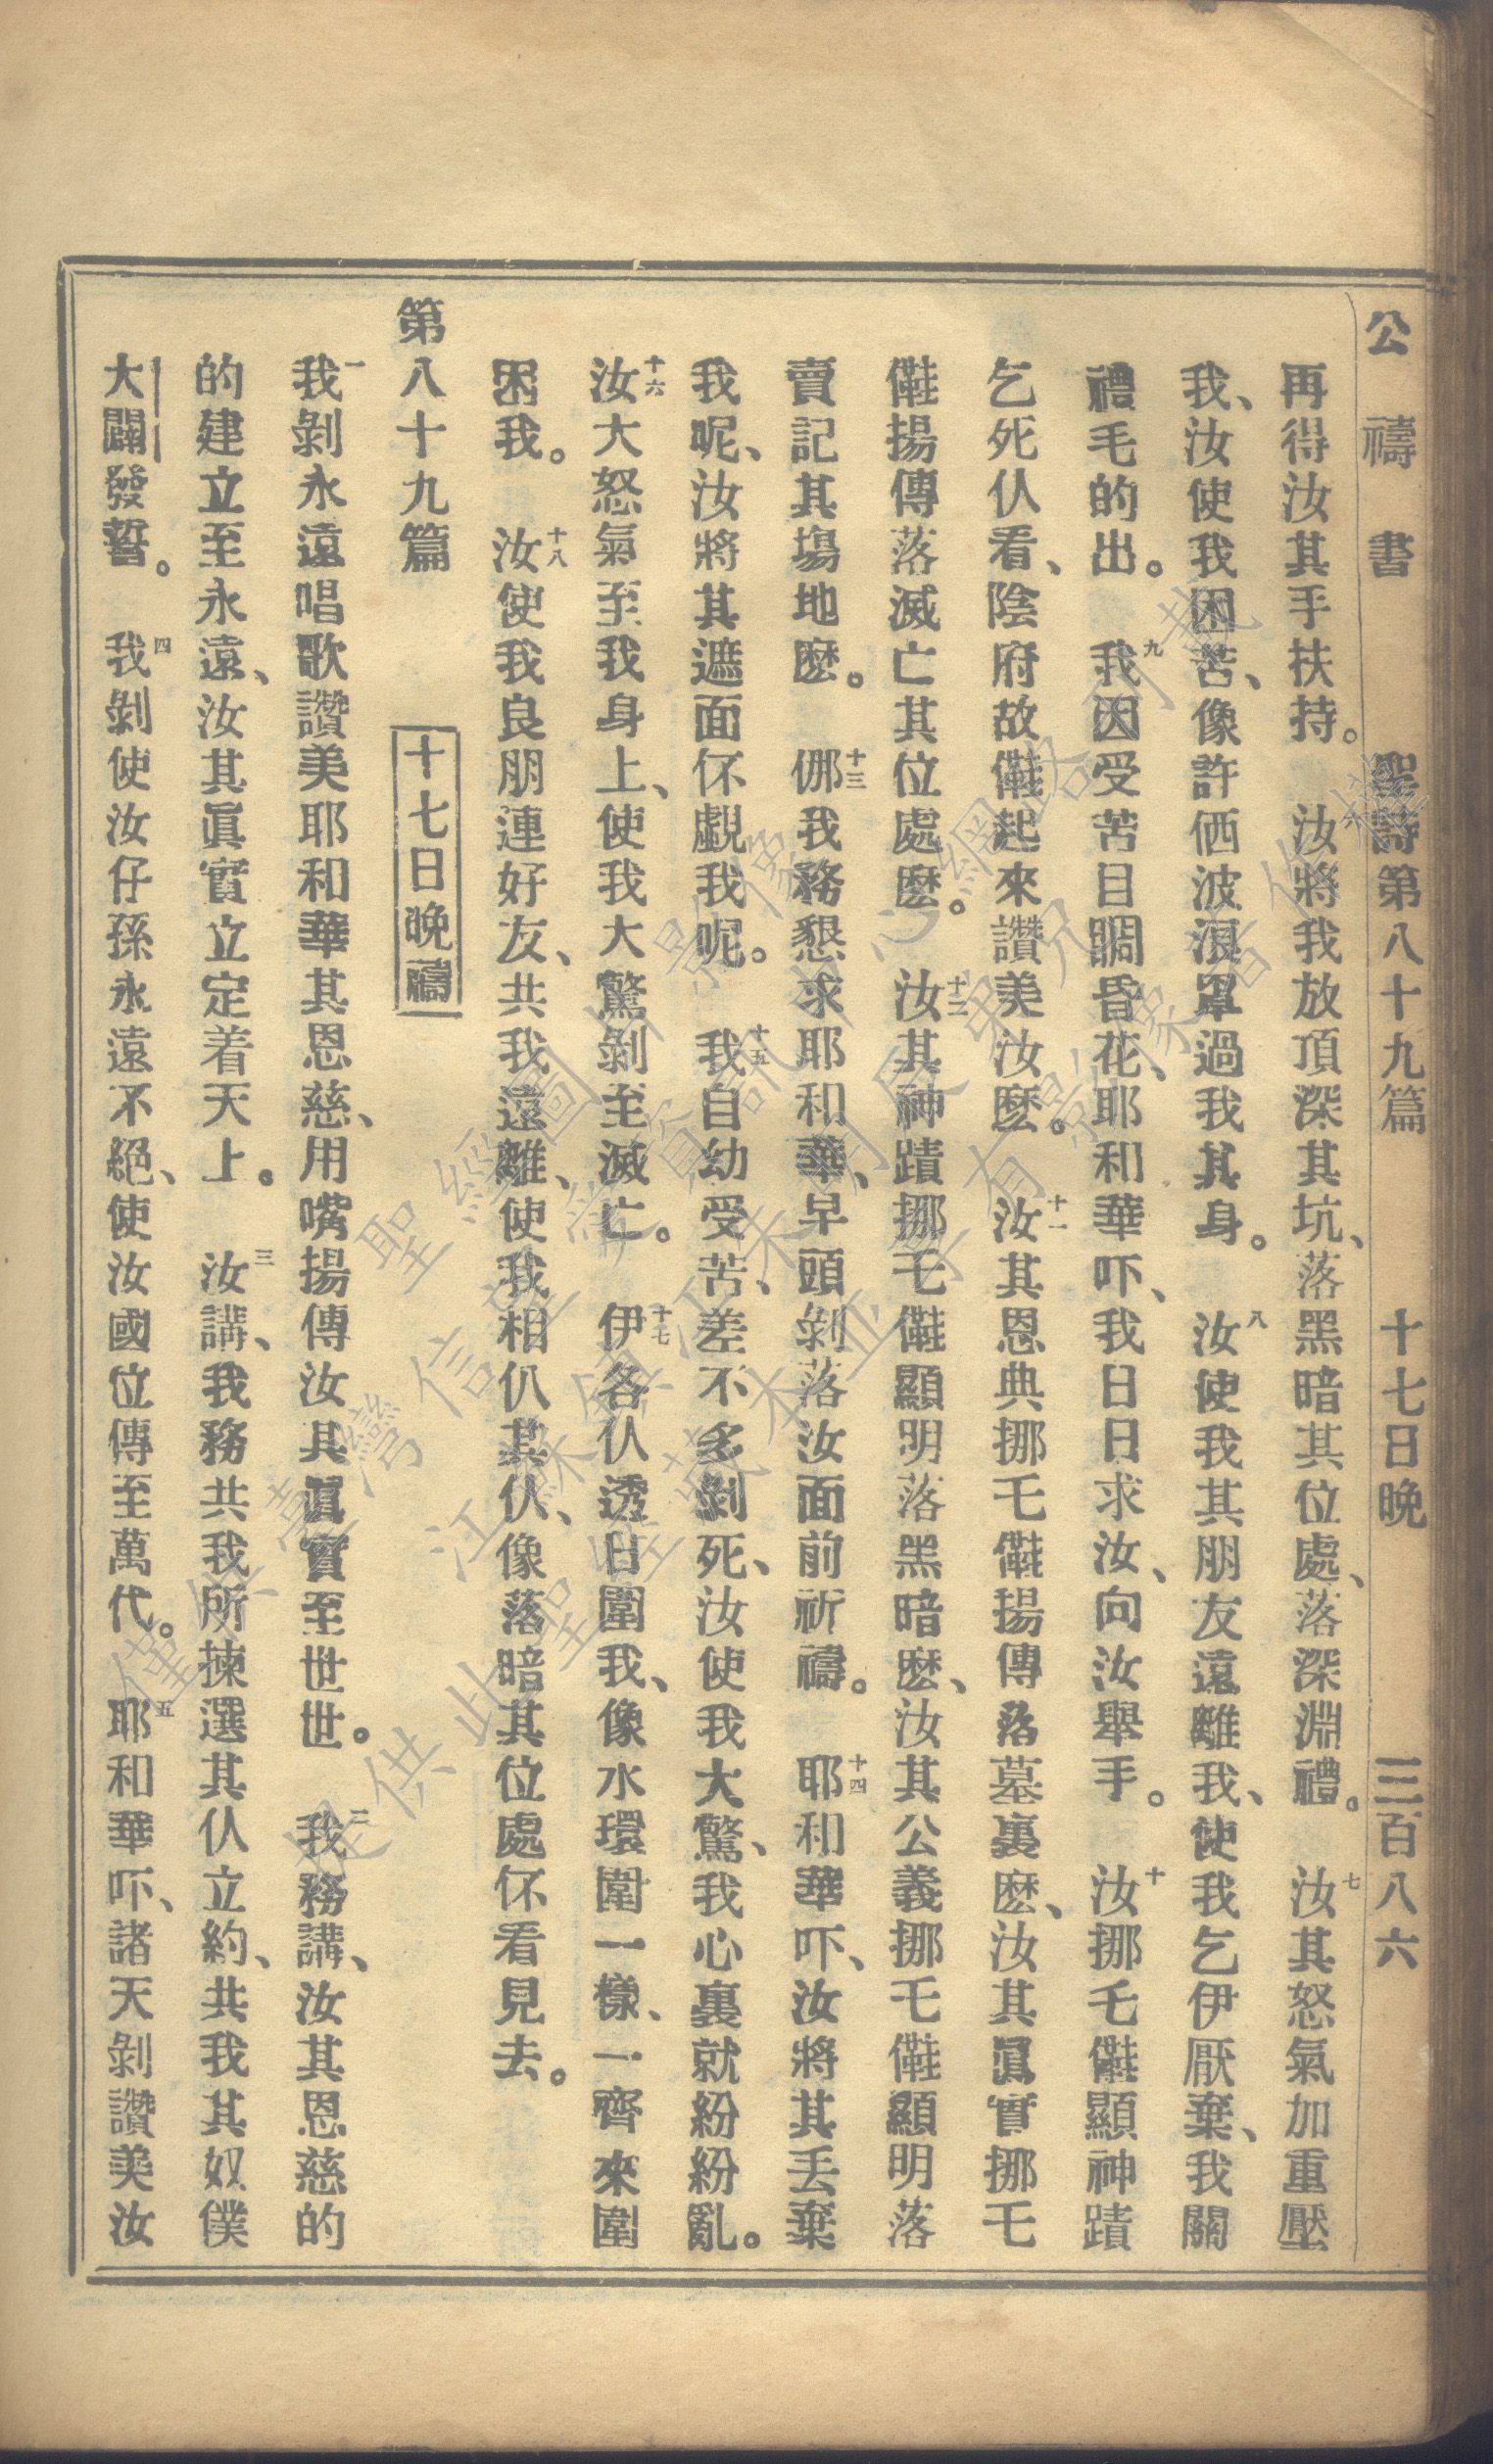 公禱書 聖詩第八十九篇 十七日晚 三百八六
再得汝其手扶持。 汝將我放頂深其坑、落黑暗其位處、落深淵禮。 七汝其怒氣加重壓
我、汝使我困苦、像許栖波浪罩過我其身。 八汝使我其朋友遠離我、使我乞伊厭棄、我關
禮毛的出。 九我因受苦目睭昏花、耶和華吓、我日日求汝、向汝舉手。 十汝挪乇㒲顯神蹟
乞死仈看、陰府故㒲起來讚美汝麽。 十一汝其恩典挪乇㒲揚傳落墓裏麽、汝其眞實挪乇
㒲揚傳落滅亡其位處麽。 十二汝其神蹟挪乇㒲顯明落黑暗麽、汝其公義挪乇㒲顯明落
賣記其塲地麽。 十三倻我務懇求耶和華、早頭剝落汝面前祈禱。 十四耶和華吓、汝將其丟棄
我呢、汝將其遮面伓覷我呢。 十五我自幼受苦、差不多剝死、汝使我大驚、我心裏就紛紛亂。
十六汝大怒氣至我身上、使我大驚剝至滅亡。 十七伊各仈透日圍我、像水環圍一樣、一齊來圍
困我。 十八汝使我良朋連好友、共我遠離、使我相㐲其仈、像落暗其位處伓看見去。
第八十九篇 十七日晚禱
一我剝永遠唱歌讚美耶和華其恩慈、用嘴揚傳汝其眞實至世世。 二我務講、汝其恩慈的
的建立至永遠、汝其眞實立定着天上。 三汝講、我務共我所揀選其仈立約、共我其奴僕
大闢發誓。 四我剝使汝仔孫永遠不絕、使汝國位傳至萬代。 五耶和華吓、諸天剝讚美汝